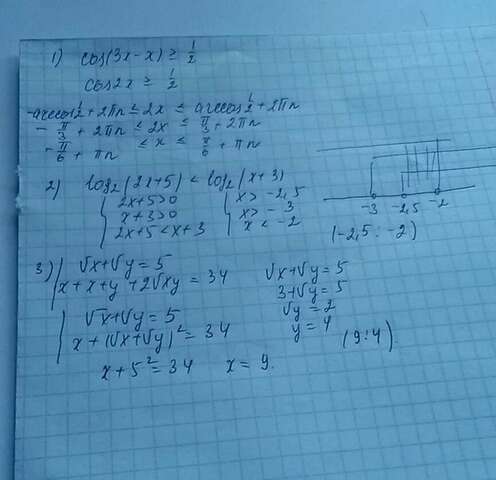 1) cos(3x-x) ≥ 1/2
cos2x ≥ 1/2
-arccos 1/2 + 2πn ≤ 2x ≤ arccos 1/2 + 2πn
- π/3 + 2πn ≤ 2x ≤ π/3 + 2πn
- π/6 + πn ≤ x ≤ π/6 + πn
2) log₂(2x+5) < log₂(x+3)
{ 2x+5>0 { x > -2,5
x+3>0 x > -3
2x+5 < x+3 x < -2
-3 -2,5 -2
(-2,5 ; -2)
3) { √x+√y = 5
x+x+y+2√xy = 34
{ √x+√y = 5
x+(√x+√y)² = 34
x+5² = 34 x = 9.
√x+√y = 5
3+√y = 5
√y = 2
y = 4
(9;4).